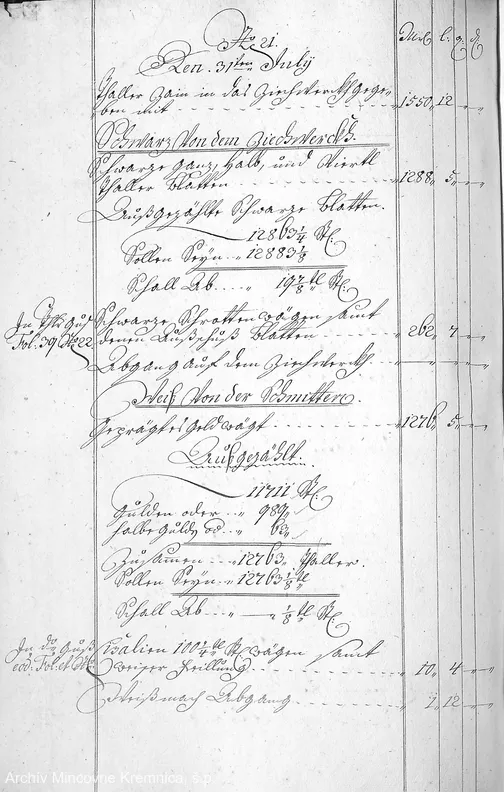 No 21.
Den 31ten July
M. l. q. d.
Thaller Zain in das Ziechwerckh gege„
ben mit 1550„ 12 „ „
Schwarz Von dem Ziechwerckh.
Schwarze Ganz, Halb, und Viertl
Thaller Blatten 1288„ 5„ „
Außgezählte Schwarze Blatten.
12863 1/4 St.
Sollen Seyn „ 12883 1/8
Schall Ab „ 19 7/8 tl St.
In Thlr Guß Schwarze Schrotten wägen samt
Fol. 39 No 22 denen Außschuß Blatten 262„ 7 „
Abgang auf dem Ziechwerckh
Weiß Von der Schmitten.
Geprägtes Geld wägt 1276„ 5„ „
Außgezählt.
11711 St.
Gulden oder „ 989„
halbe Guld. od. „ 63„
Zusamen „ 12763„ Thaller.
Sollen Seyn „ 12763 1/8 tl
Schall Ab „ 1/8 tl St.
In do Guß Cisalien 100 1/4 tl St. wägen samt
eod. Fol. et No weiser Feillung 10„ 4 „
Weißmach Abgang 1„ 12 „
Archív Mincovne Kremnica, š.p.